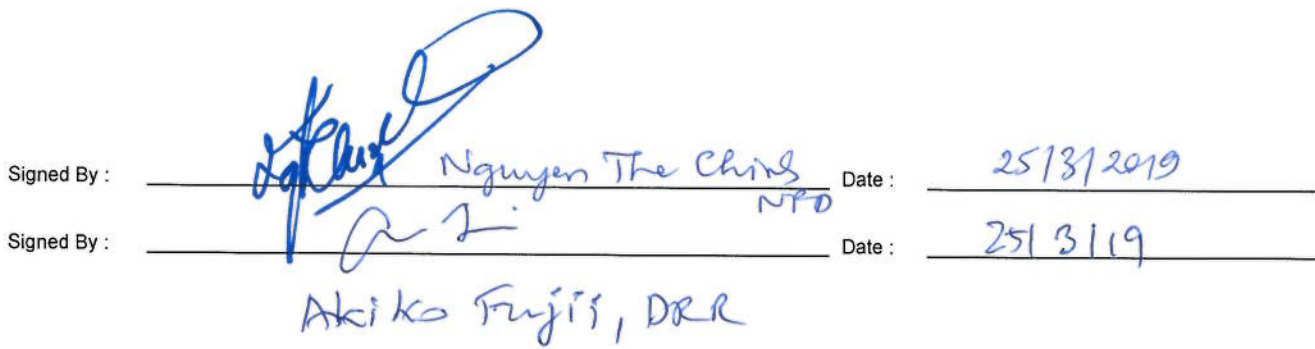 Signed By : Nguyen The Chinh Date : 25/3/2019
NPD
Signed By : Date : 25/3/19
Akiko Fujii, DRR